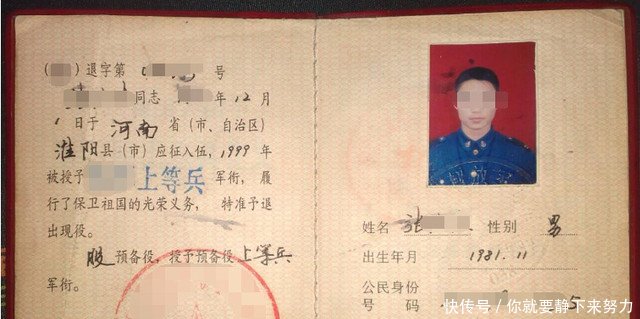 ( )退字第 号
同志 年12月
1日于河南省(市、自治区)
淮阳县(市)应征入伍,1999年
被授予 上等兵军衔,履
行了保卫祖国的光荣义务,特准予退
出现役。
服预备役,授予预备役上等兵
军衔。
姓名 张 性别 男
出生年月 1981.11
公民身份
号码 5
快传号/你就要静下来努力